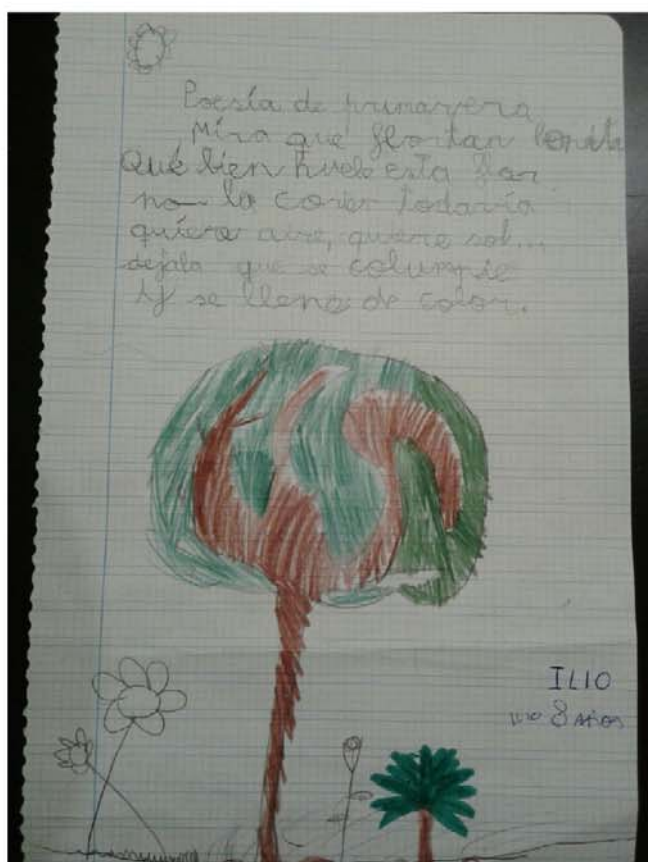 Poesía de primavera
Mira que flor tan bonita
Qué bien huele esta flor
no la cortes todavía
quiere aire, quiere sol...
dejala que se columpie
y se llene de color.
ILIO
8 AÑOS